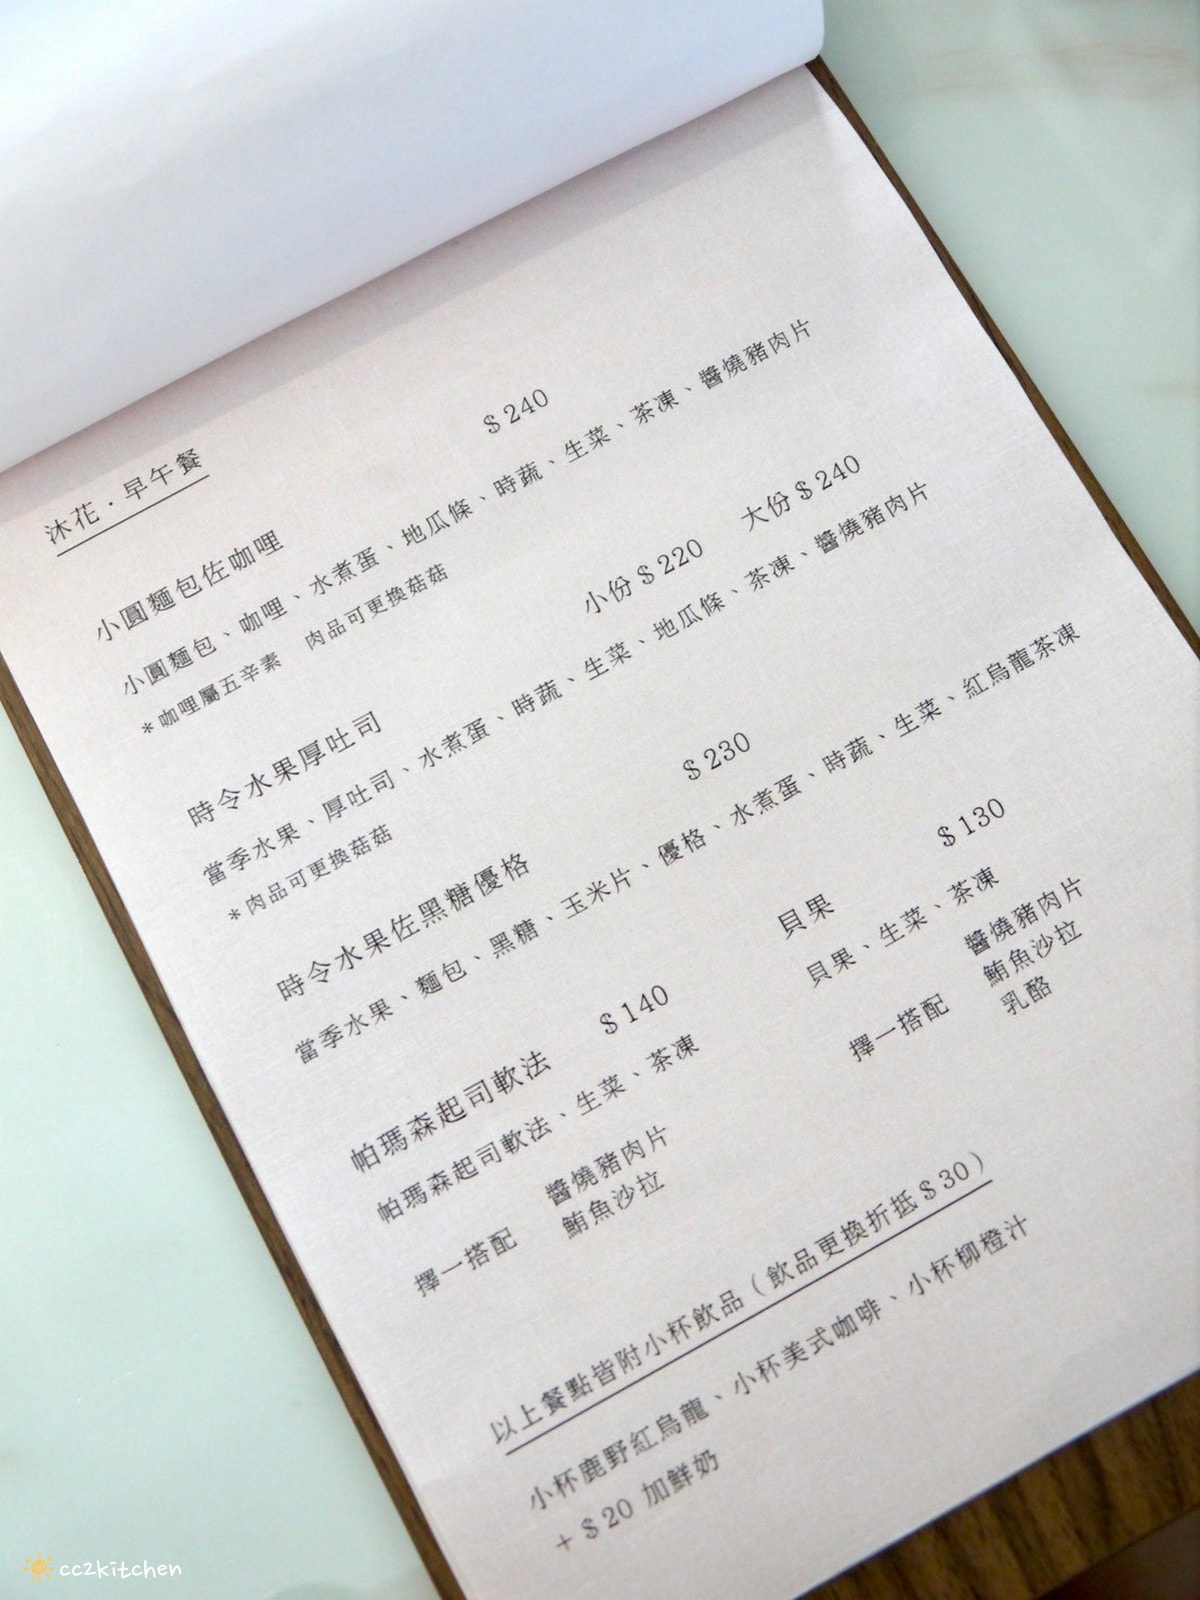 沐花·早午餐
小圓麵包佐咖哩 $240
小圓麵包、咖哩、水煮蛋、地瓜條、時蔬、生菜、茶凍、醬燒豬肉片
*咖哩屬五辛素 肉品可更換菇菇
時令水果厚吐司 小份$220 大份$240
當季水果、厚吐司、水煮蛋、時蔬、生菜、地瓜條、茶凍、醬燒豬肉片
*肉品可更換菇菇
時令水果佐黑糖優格 $230
當季水果、麵包、黑糖、玉米片、優格、水煮蛋、時蔬、生菜、紅烏龍茶凍
帕瑪森起司軟法 $140
帕瑪森起司軟法、生菜、茶凍
擇一搭配 醬燒豬肉片
鮪魚沙拉
貝果 $130
貝果、生菜、茶凍
擇一搭配 醬燒豬肉片
鮪魚沙拉
乳酪
以上餐點皆附小杯飲品（飲品更換折抵$30）
小杯鹿野紅烏龍、小杯美式咖啡、小杯柳橙汁
+$20 加鮮奶
cc2kitchen